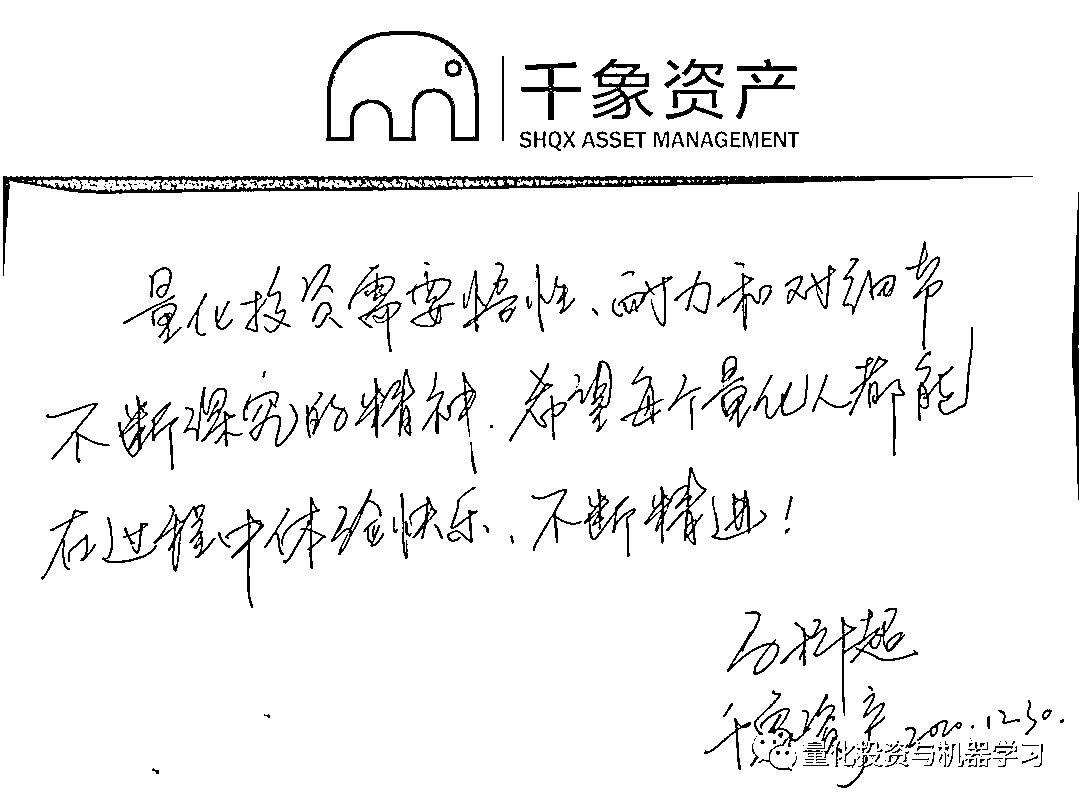 千象资产
SHQX ASSET MANAGEMENT
量化投资需要悟性、耐力和对细节
不断深究的精神.希望每个量化人都能
在过程中体验快乐、不断精进!
超
千象资产 2020.12.30.
量化投资与机器学习